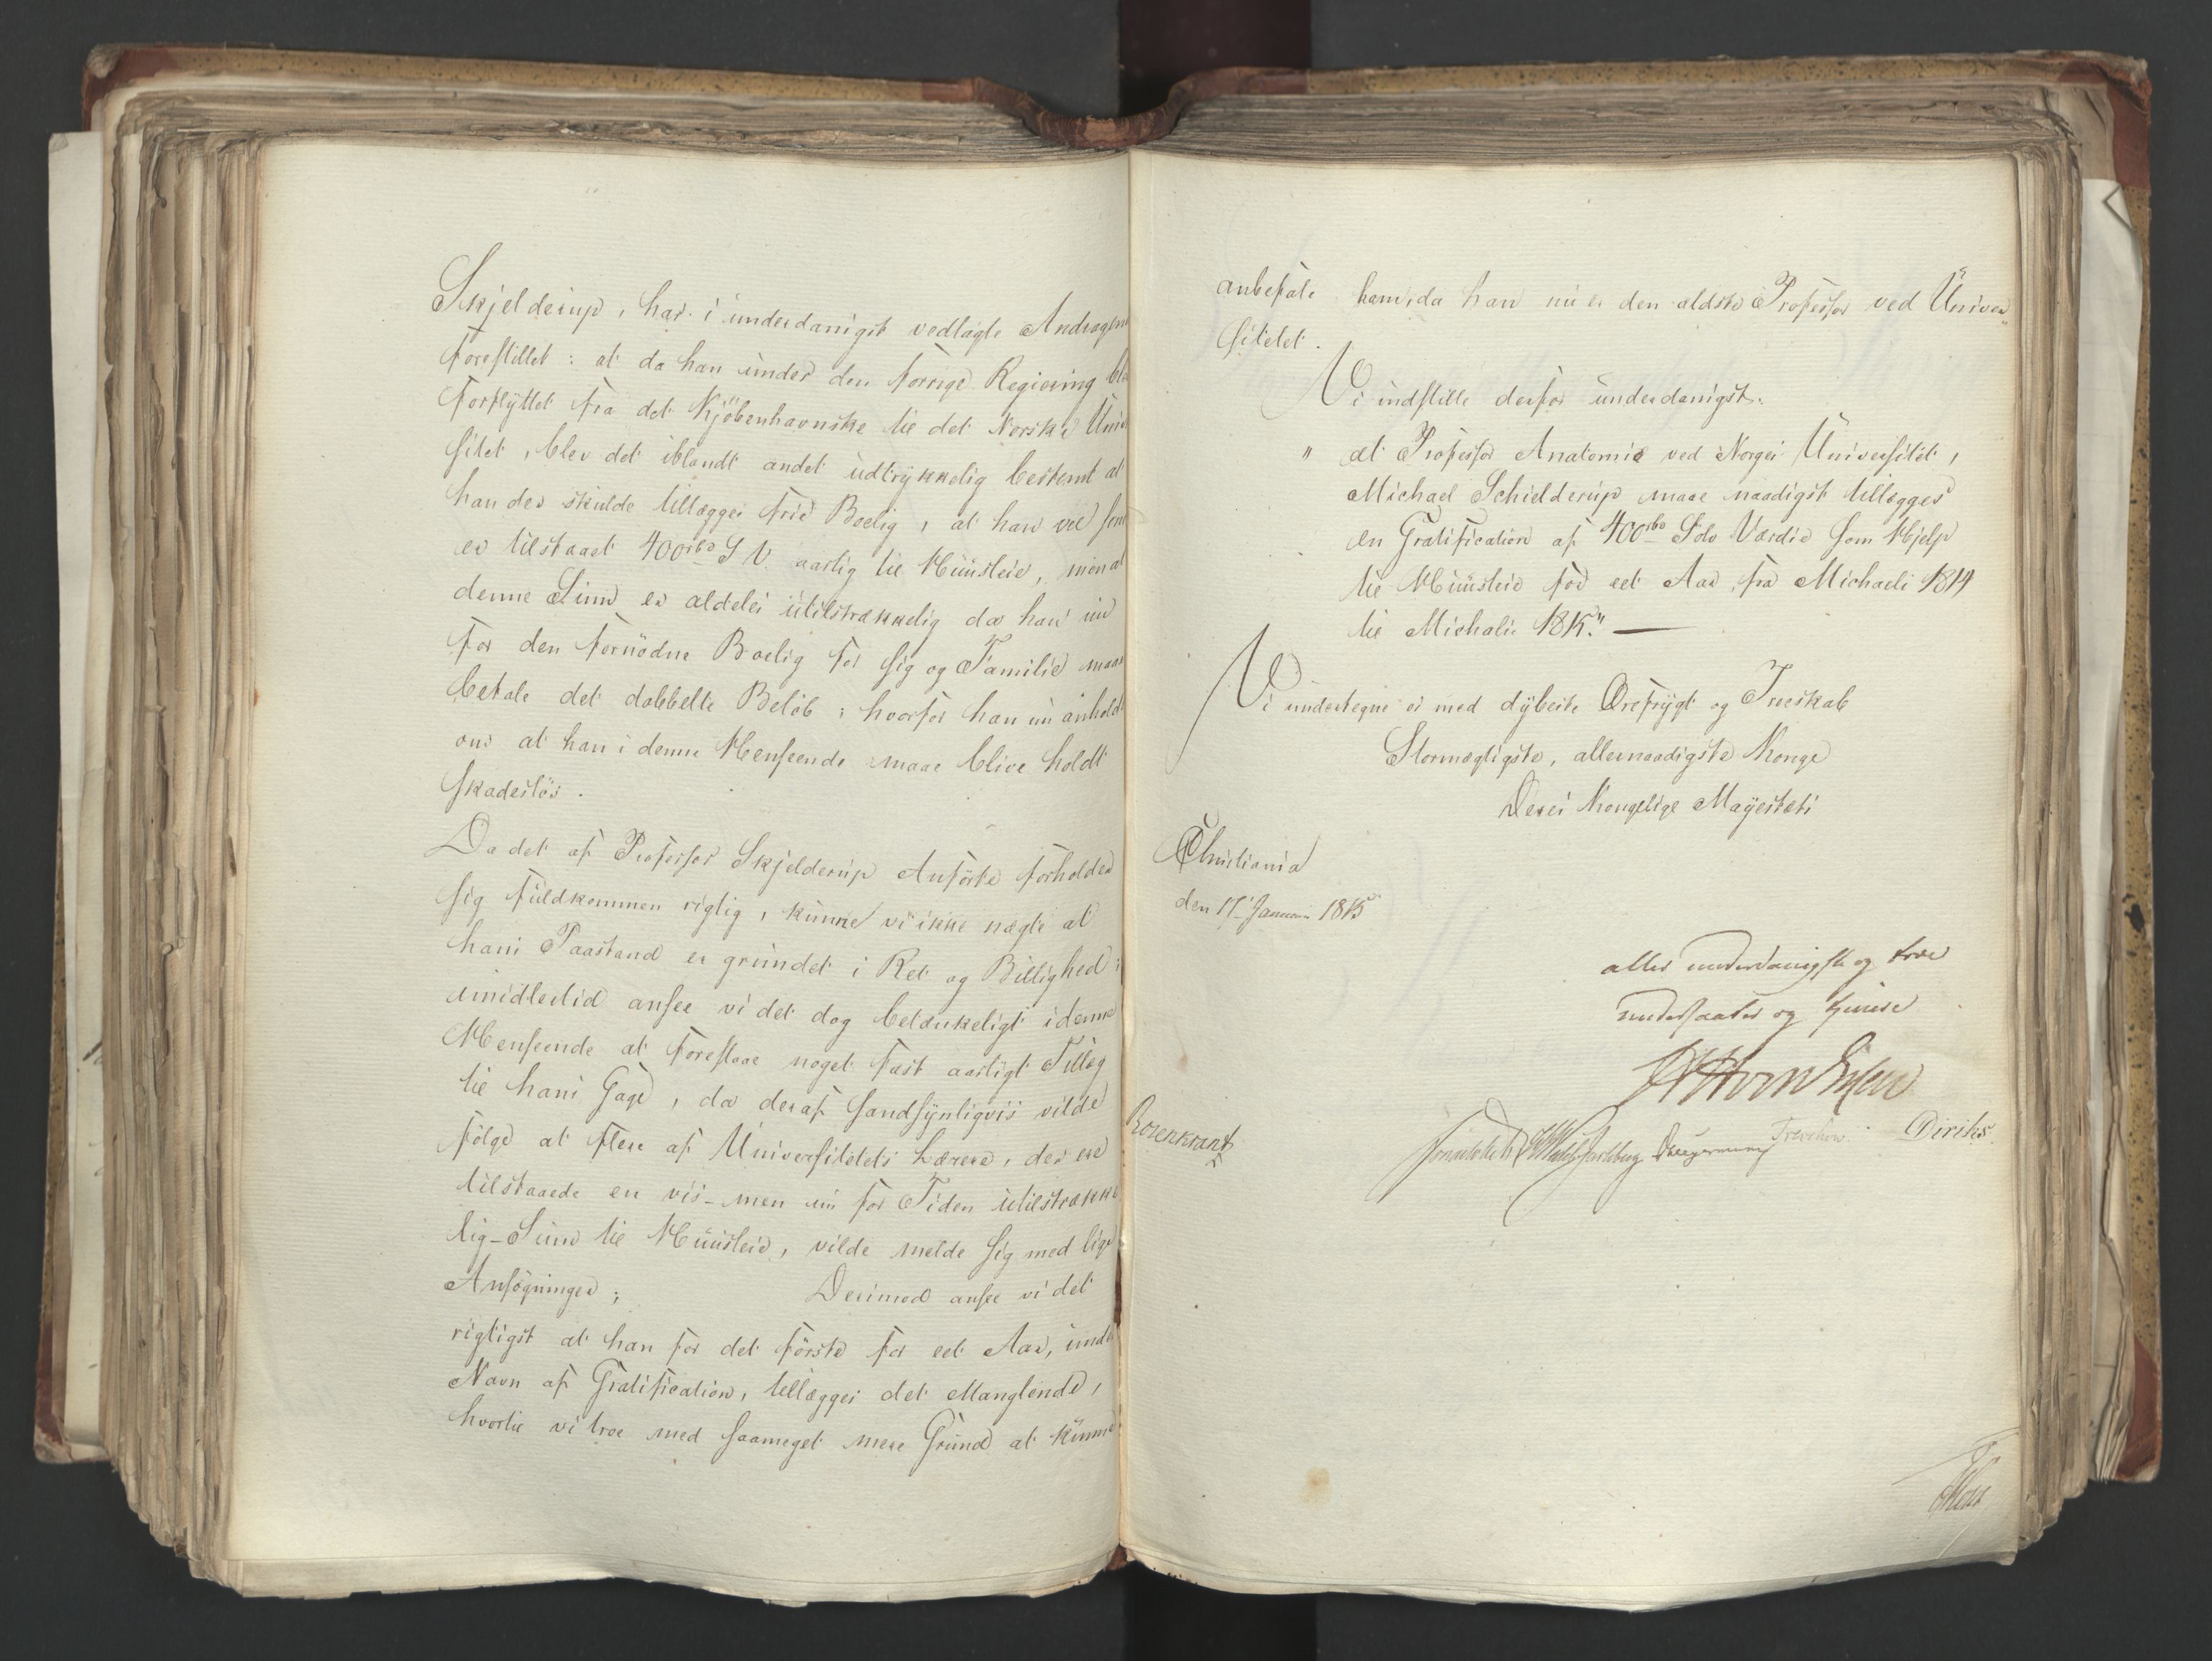 Skjelderup, har i underdanigst vedlagte Andragen
forestillet: at da han under den forrige Regiering ble
forflyttet fra det Kjöbenhavnske til det Norske Univ
sitet, blev det iblandt andet udtrykkelig bestemt at
han der skulde tillægges frie Boelig, at han vel sen
er tilstaaet 400 rbd S. V. aarlig til Huusleie, men at
denne Sum er aldeles utilstrækkelig da han nu
for den fornödne Boelig for sig og Familie maae
betale det dobbelte Belöb; hvorfor han nu anhold
om at han i denne Henseende maae blive holdt
skadeslös.
Da det af Professor Skjelderup Anförte forholder
sig fuldkommen rigtig, kunne vi ikke nægte at
hans Paastand er grundet i Ret og Billighed;
imidlertid ansee vi det dog betænkeligt i denne
Henseende at foreslaae noget fast aarligt Tillæg
til hans Gage, da deraf sandsynligviis vilde
fölge at flere af Universitetets Lærere, der ere
tilstaaede en vis - men nu for Tiden utilstrække
lig - Sum til Huusleie, vilde melde sig med lige
Ansögninger; Derimod ansee vi det
rigtigst at han for det förste for eet Aar, unde
Navn af Gratification, tillægges det Manglende,
hvortil vi troe med saameget mere Grund at kunne
anbefale ham, da han nu er den ældste Professor ved Univer„
sitetet.
Vi indstille derfor underdanigst:
" at Professor Anatomiæ ved Norges Universitet,
Michael Schielderup maae naadigst tillægges
en Gratification af 400 rbd Sölv Værdie som Hjelp
til Huusleie for eet Aar, fra Michaeli 1814
til Michaeli 1815." —
Vi undertegne os med dybeste Ærefrygt og Troeskab
Stormægtigste, allernaadigste Konge
Deres Kongelige Mayestæts
Christiania
den 17 Januari 1815
aller underdanigste og troe
undersaatter og tjenere
Rosenkrantz
Treschow Diriks